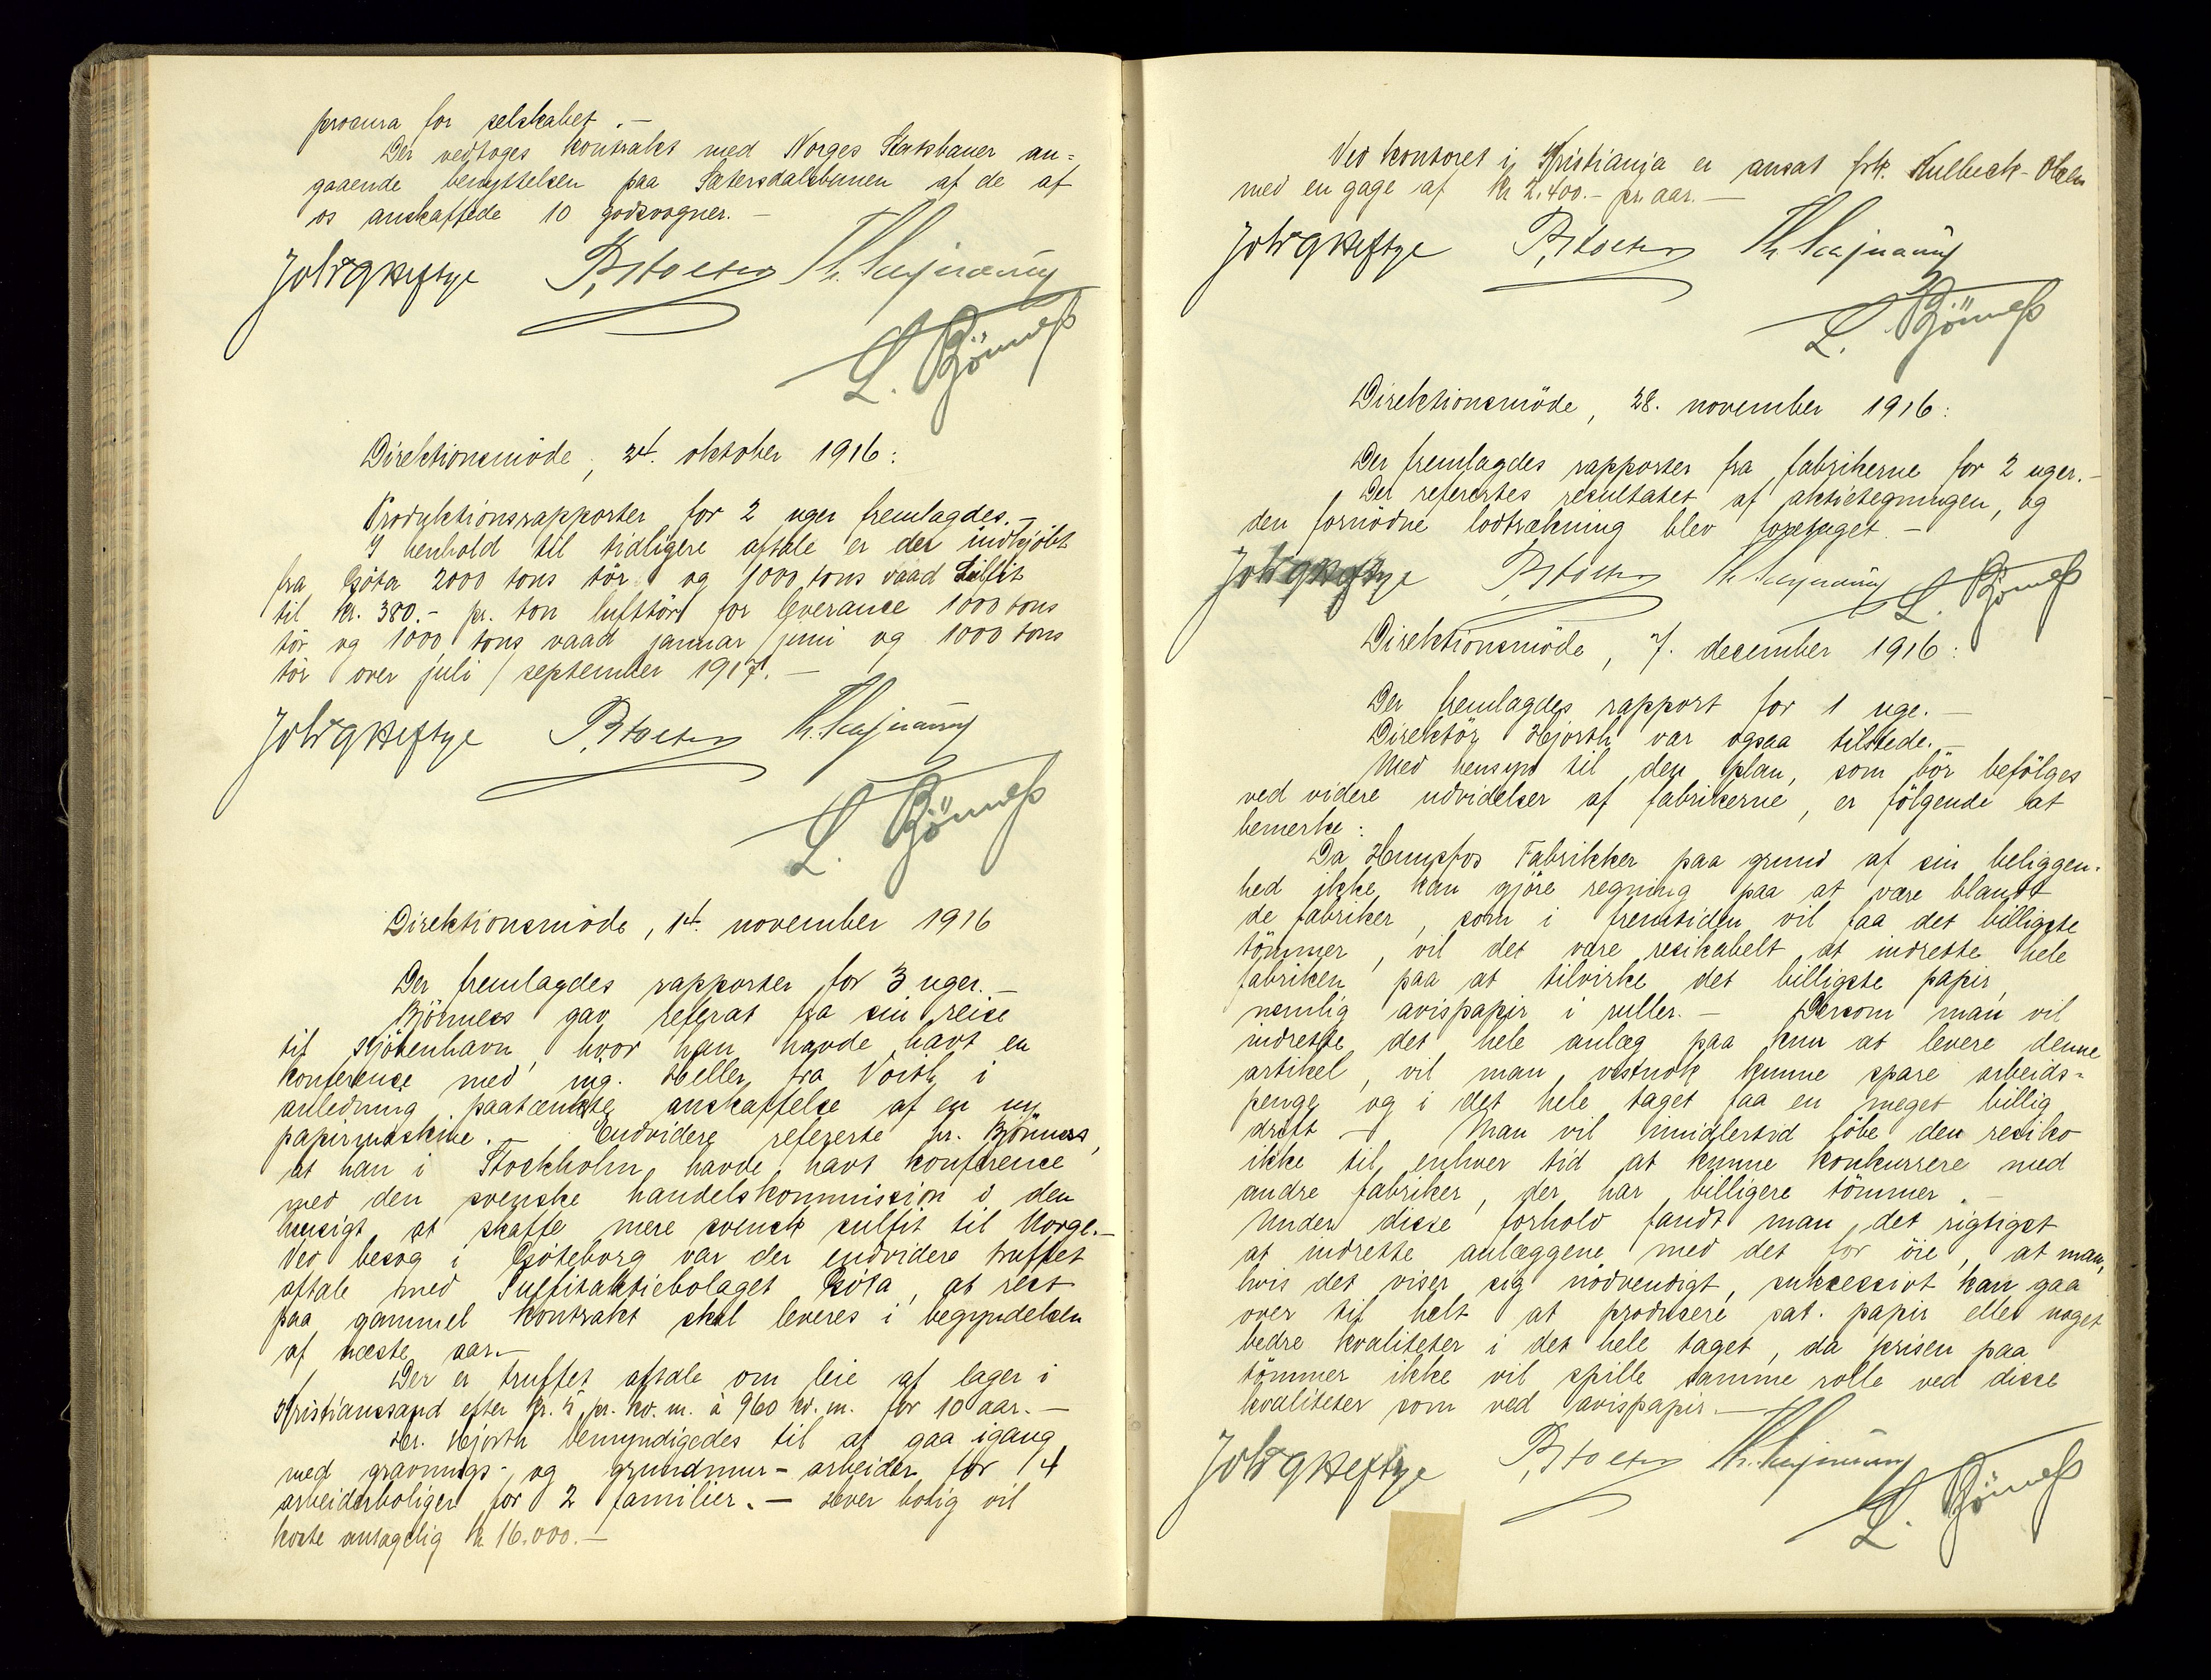 procura for selskabet .—
Der vedtoges kontrakt med Norges Statsbaner an=
gaaende benyttelsen paa Sætersdalsbanen af de af
os anskaffede 10 godsvogner. —
Joh. Heftye P. Stoltz
L. Bjönness
Direktionsmöde, 24. oktober 1916:
Produktionsrapporter for 2 uger fremlagdes.—
I henhold til tidligere aftale er der indkjöbt
fra Göta 2000 tons tör og 1000 tons vaad Sulfit
til kr. 380.- pr. ton lufttört for leverance 1000 tons
tör og 1000 tons vaad januar/juni og 1000 tons
tör over juli/september 1917.—
Joh. Heftye P. Stoltz
L. Bjönness
Direktionsmöde, 14. november 1916
Der fremlagdes rapporter for 3 uger.—
Bjönness gav referat fra sin reise
til Kjöbenhavn, hvor han havde havt en
konference med ing. Heller fra Voith i
anledning paatænkte anskaffelse af en ny
papirmaskine. — Endvidere refererte hr. Bjönness,
at han i Stockholm havde havt konference
med den svenske handelskommission i den
hensigt at skaffe mere svensk sulfit til Norge.—
Ved besög i Göteborg var der endvidere truffet
aftale med Sulfitaktiebolaget Göta, at rest
paa gammel kontrakt skal leveres i begyndelsen
af næste aar.—
Der er truffet aftale om leie af lager i
Kristianssand efter kr. 5 pr. kv. m. à 960 kv. m. for 10 aar.—
Hr. Hjorth bemyndigedes til at gaa igang
med gravnings- og grundmur-arbeider for 14
arbeiderboliger for 2 familier.— Hver bolig vil
koste antagelig kr 16.000.—
Ved kontoret i Kristiania er ansat frk. Kulbeck-Olsen
med en gage af kr 2.400.- pr. aar.—
Joh. Heftye P. Stoltz
L. Bjönness
Direktionsmöde, 28. november 1916:
Der fremlagdes rapporter fra fabrikerne for 2 uger.—
Der referertes resultatet af aktietegningen, og
den fornödne lodtrækning blev foretaget.—
Joh. Heftye P. Stoltz L. Bjönness
Direktionsmöde, 7. december 1916:
Der fremlagdes rapport for 1 uge.—
Direktör Hjorth var ogsaa tilstede.—
Med hensyn til den plan, som bör befölges
ved videre udvidelser af fabrikerne, er fölgende at
bemerke:
Da Hunsfos Fabrikker paa grund af sin beliggen-
hed ikke kan gjöre regning paa at være blandt
de fabriker, som i fremtiden vil faa det billigste
tömmer, vil det være resikabelt at indrette hele
fabriken paa at tilvirke det billigste papir,
nemlig avispapir i ruller.— Dersom man vil
indrette det hele anlæg paa kun at levere denne
artikel, vil man vistnok kunne spare arbeids-
penge og i det hele taget faa en meget billig
drift.— Man vil imidlertid löbe den resiko
ikke til enhver tid at kunne konkurrere med
andre fabriker, der har billigere tömmer.—
Under disse forhold fandt man det rigtigst
at indrette anlæggene med det for öie, at man,
hvis det viser sig nödvendigt, suksessivt kan gaa
over til helt at producere sat. papir eller noget
bedre kvaliteter i det hele taget, da prisen paa
tömmer ikke vil spille samme rolle ved disse
kvaliteter som ved avispapir.—
Joh. Heftye P. Stoltz
L. Bjönness